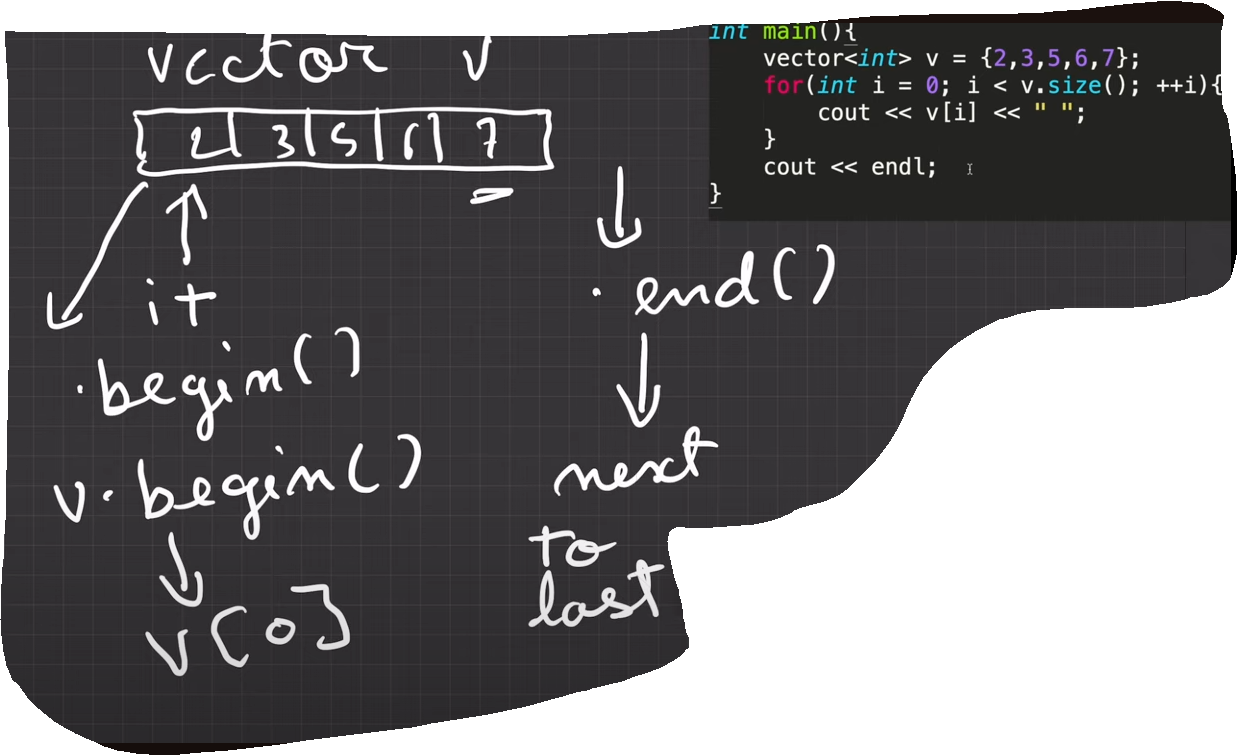 vector v
2 3 5 6 7
it
.begin()
v.begin()
v[0]
.end()
next
to
last
int main(){
vector<int> v = {2,3,5,6,7};
for(int i = 0; i < v.size(); ++i){
cout << v[i] << " ";
}
cout << endl;
}